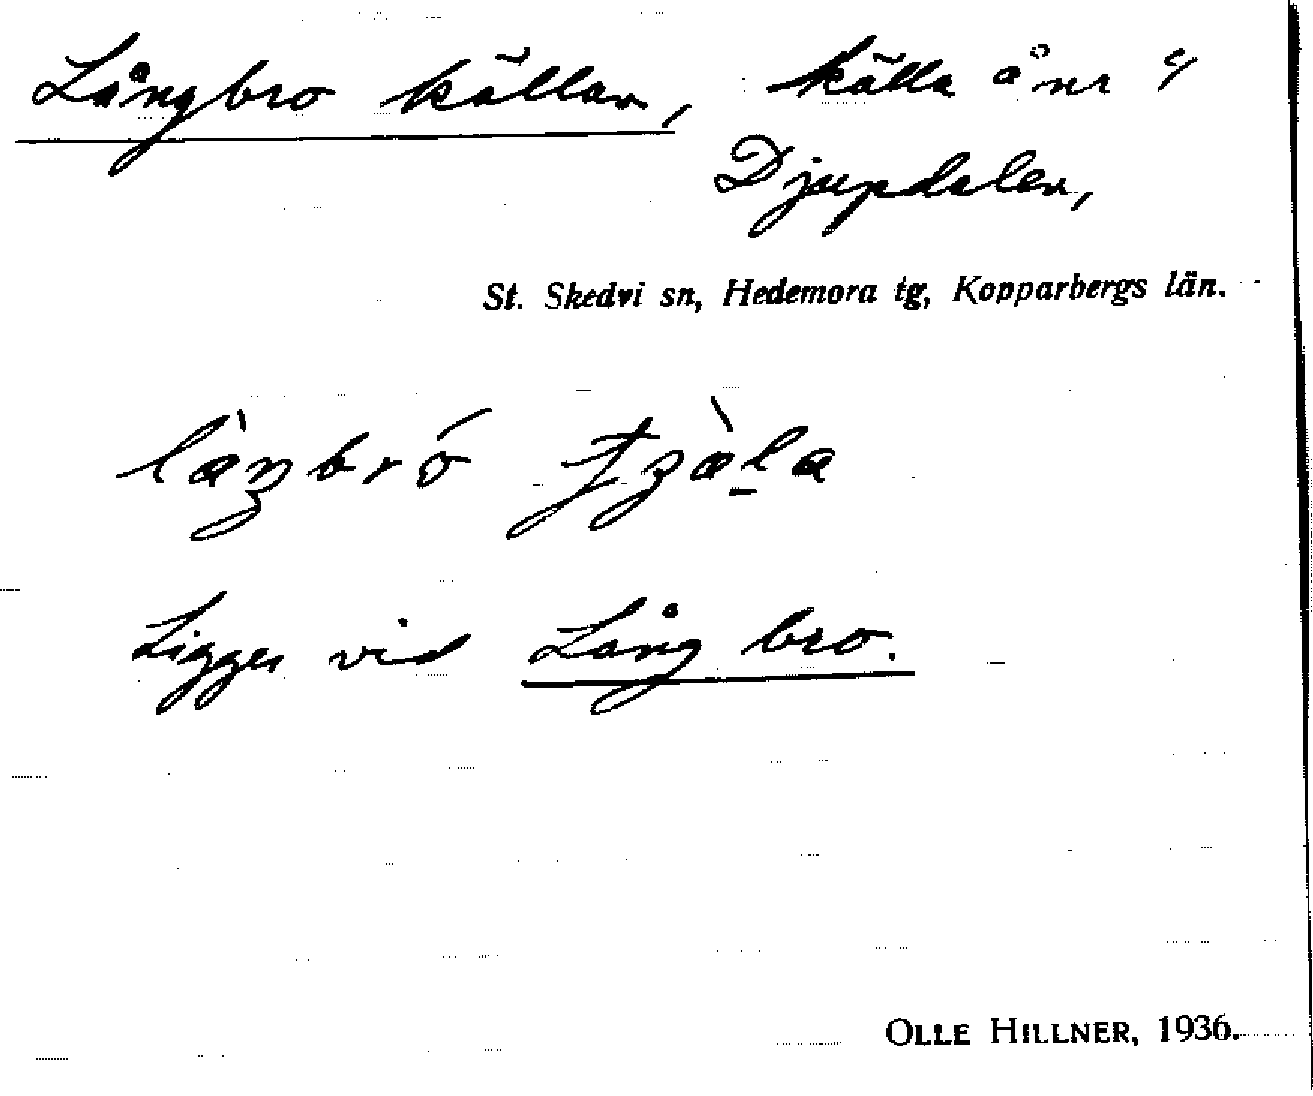 Långbro källan, källa å nr 4
Djupdalen,
St. Skedvi sn, Hedemora tg, Kopparbergs län.
Ligger vid Lång bro.
OLLE HILLNER, 1936.